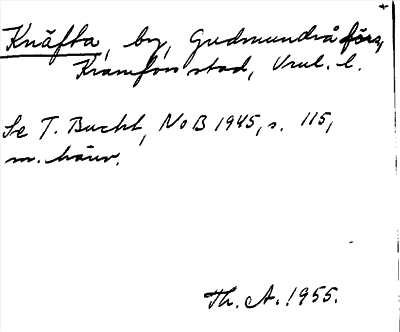 Knäfta, by, Gudmundrå förs,
Kramfors stad, Vnrl. l.
Se T. Bucht, NoB 1945, s. 115,
m. hänv.
Th. A. 1955.